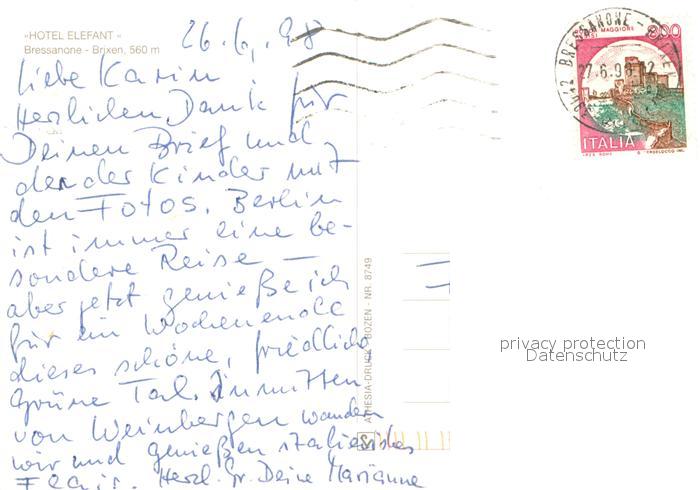 «HOTEL ELEFANT»
Bressanone - Brixen, 560 m
26.6.98
Liebe Karin
Herzlichen Dank für
Deinen Brief und
den der Kinder mit
den Fotos. Berlin
ist immer eine be-
sondere Reise –
aber jetzt genieße ich
für ein Wochenende
dieses schöne, friedliche
Grüne Tal. Inmitten
von Weinbergen wandern
wir und genießen italienisches
Flair. Herzl. Gr. Deine Marianne
ATHESIA-DRUCK - BOZEN - NR. 8749
BRESSANONE
27.6.98
MAGGIORE
800
ITALIA
privacy protection
Datenschutz